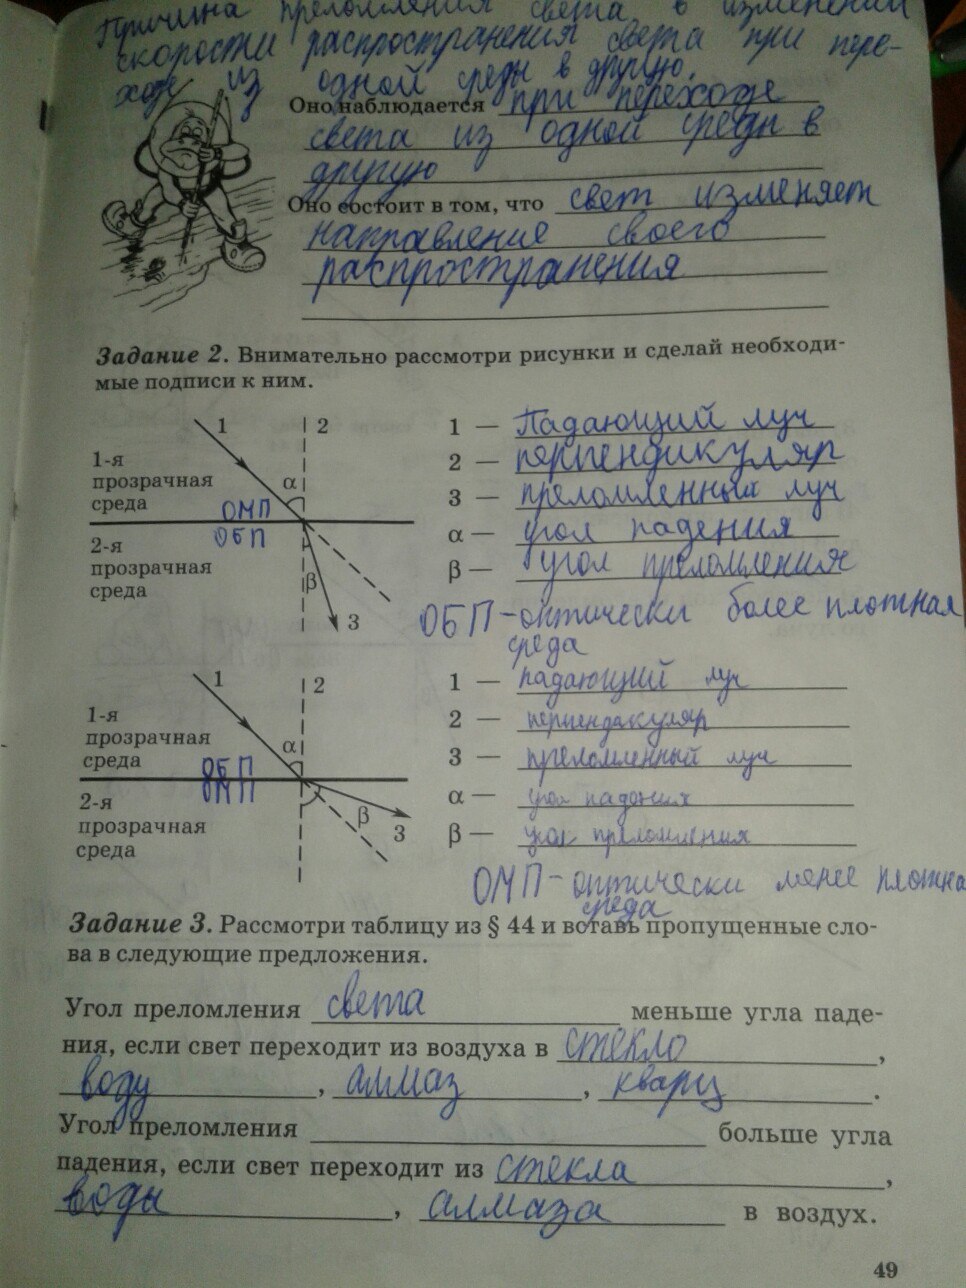 Причина преломления света в изменении
скорости распространения света при пере-
ходе из одной среды в другую.
Оно наблюдается при переходе
света из одной среды в
другую
Оно состоит в том, что свет изменяет
направление своего
распространения
Задание 2. Внимательно рассмотри рисунки и сделай необходи-
мые подписи к ним.
1 2
1-я
прозрачная
среда
α
ОМП
ОБП
2-я
прозрачная
среда
β
3
1 — Падающий луч
2 — перпендикуляр
3 — преломленный луч
α — угол падения
β — угол преломления
ОБП - оптически более плотная
среда
1 2
1-я
прозрачная
среда
α
ОБП
ОМП
2-я
прозрачная
среда
β
3
1 — падающий луч
2 — перпендикуляр
3 — преломленный луч
α — угол падения
β — угол преломления
ОМП - оптически менее плотна
среда
Задание 3. Рассмотри таблицу из § 44 и вставь пропущенные сло-
ва в следующие предложения.
Угол преломления света меньше угла паде-
ния, если свет переходит из воздуха в стекло,
воду, алмаз, кварц.
Угол преломления больше угла
падения, если свет переходит из стекла,
воды, алмаза в воздух.
49